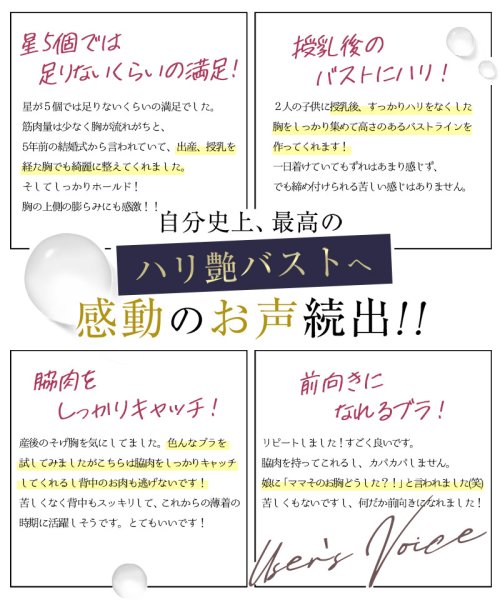 星5個では
足りないくらいの満足!
星が5個では足りないくらいの満足でした。
筋肉量は少なく胸が流れがちと、
5年前の結婚式から言われていて、出産、授乳を
経た胸でも綺麗に整えてくれました。
そしてしっかりホールド!
胸の上側の膨らみにも感激!!
授乳後の
バストにハリ!
2人の子供に授乳後、すっかりハリをなくした
胸をしっかり集めて高さのあるバストラインを
作ってくれます!
一日着けていてもずれはあまり感じず、
でも締め付けられる苦しい感じはありません。
自分史上、最高の
ハリ艶バストへ
感動のお声続出!!
脇肉を
しっかりキャッチ!
産後のそげ胸を気にしてました。色んなブラを
試してみましたがこちらは脇肉をしっかりキャッチ
してくれるし背中のお肉も逃げないです!
苦しくなく背中もスッキリして、これからの薄着の
時期に活躍しそうです。とてもいいです!
前向きに
なれるブラ!
リピートしました!すごく良いです。
脇肉を持ってこれるし、カパカパしません。
娘に「ママそのお胸どうした?!」と言われました(笑)
苦しくもないですし、何だか前向きになれました!
User's Voice